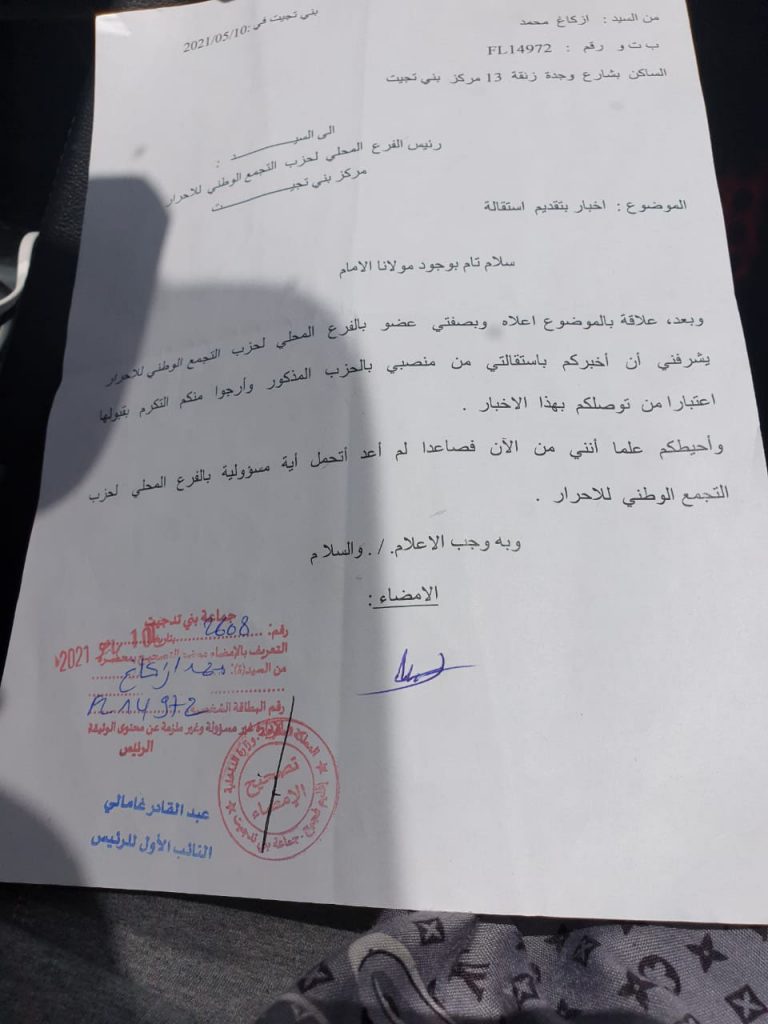 بني تجيت في :2021/05/10
من السيد : ازكاغ محمد
ب ت و رقم : FL14972
الساكن بشارع وجدة زنقة 13 مركز بني تجيت
الى السيـــــــد :
رئيس الفرع المحلي لحزب التجمع الوطني للاحرار
مركز بني تجيـــــــت
الموضوع : اخبار بتقديم استقالة
سلام تام بوجود مولانا الامام
وبعد، علاقة بالموضوع اعلاه وبصفتي عضو بالفرع المحلي لحزب التجمع الوطني للاحرار
يشرفني أن أخبركم باستقالتي من منصبي بالحزب المذكور وأرجوا منكم التكرم بقبولها
اعتبارا من توصلكم بهذا الاخبار .
وأحيطكم علما أنني من الآن فصاعدا لم أعد أتحمل أية مسؤولية بالفرع المحلي لحزب
التجمع الوطني للاحرار .
وبه وجب الاعلام. / . والسلام
الامضاء :
جماعة بني تدجيت
رقم: 2608 بتاريخ 10 ماي 2021
التعريف بالإمضاء
من السيد(ة): محمد ازكاغ
رقم البطاقة الشخصية FL14972
الإدارة غير مسؤولة وغير ملزمة عن محتوى الوثيقة
الرئيس
المملكة المغربية وزارة الداخلية
تصحيح
الإمضاء
إقليم فجيج جماعة بني تدجيت
عبد القادر غامالي
النائب الأول للرئيس